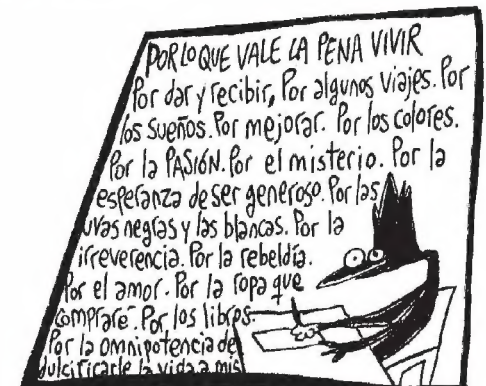 POR LO QUE VALE LA PENA VIVIR
Por dar y recibir, Por algunos viajes. Por
los sueños. Por mejorar. Por los colores.
Por la PASIÓN. Por el misterio. Por la
esperanza de ser generoso. Por las
uvas negras y las blancas. Por la
irreverencia. Por la rebeldía.
Por el amor. Por la ropa que
compraré. Por los libros.
Por la omnipotencia de
dulcificarle la vida a mis